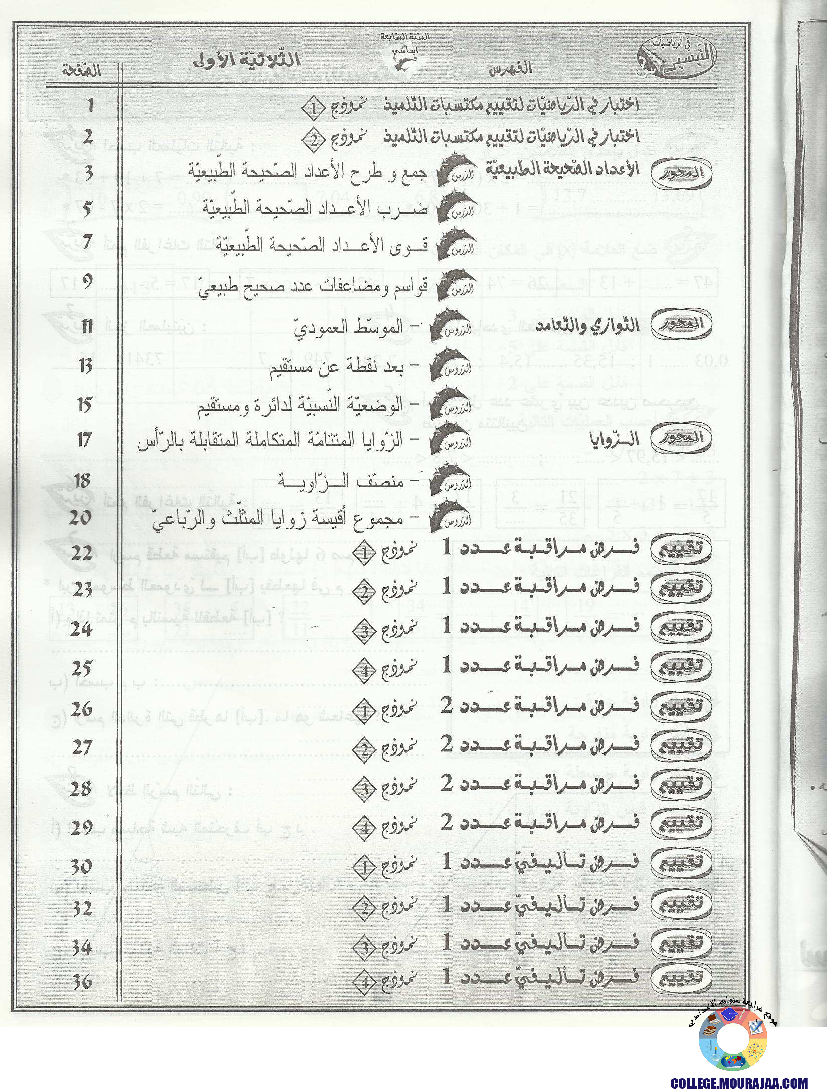 في الرياضيات
السنة السابعة
أساسي
الثلاثية الأولى
الفهرس
الصفحة
اختبار في الرّياضيّات لتقييم مكتسبات التلميذ نموذج 1 1
اختبار في الرّياضيّات لتقييم مكتسبات التلميذ نموذج 2 2
المحور الأعداد الصّحيحة الطبيعيّة الدّرس جمع و طرح الأعداد الصّحيحة الطّبيعيّة 3
الدّرس ضرب الأعداد الصّحيحة الطّبيعيّة 5
الدّرس قوى الأعداد الصّحيحة الطّبيعيّة 7
الدّرس قواسم ومضاعفات عدد صحيح طبيعيّ 9
المحور التّوازي والتّعامد الدّروس - الموسّط العموديّ 11
الدّروس - بعد نقطة عن مستقيم 13
الدّروس - الوضعيّة النّسبيّة لدائرة ومستقيم 15
المحور الزّوايا الدّروس - الزّوايا المتتامّة المتكاملة المتقابلة بالرّأس 17
الدّروس - منصّف الزّاوية 18
الدّروس - مجموع أقيسة زوايا المثلّث والرّباعيّ 20
تقييم فرض مراقبة عدد 1 نموذج 1 22
تقييم فرض مراقبة عدد 1 نموذج 2 23
تقييم فرض مراقبة عدد 1 نموذج 3 24
تقييم فرض مراقبة عدد 1 نموذج 4 25
تقييم فرض مراقبة عدد 2 نموذج 1 26
تقييم فرض مراقبة عدد 2 نموذج 2 27
تقييم فرض مراقبة عدد 2 نموذج 3 28
تقييم فرض مراقبة عدد 2 نموذج 4 29
تقييم فرض تأليفيّ عدد 1 نموذج 1 30
تقييم فرض تأليفيّ عدد 1 نموذج 2 32
تقييم فرض تأليفيّ عدد 1 نموذج 3 34
تقييم فرض تأليفيّ عدد 1 نموذج 4 36
COLLEGE.MOURAJAA.COM